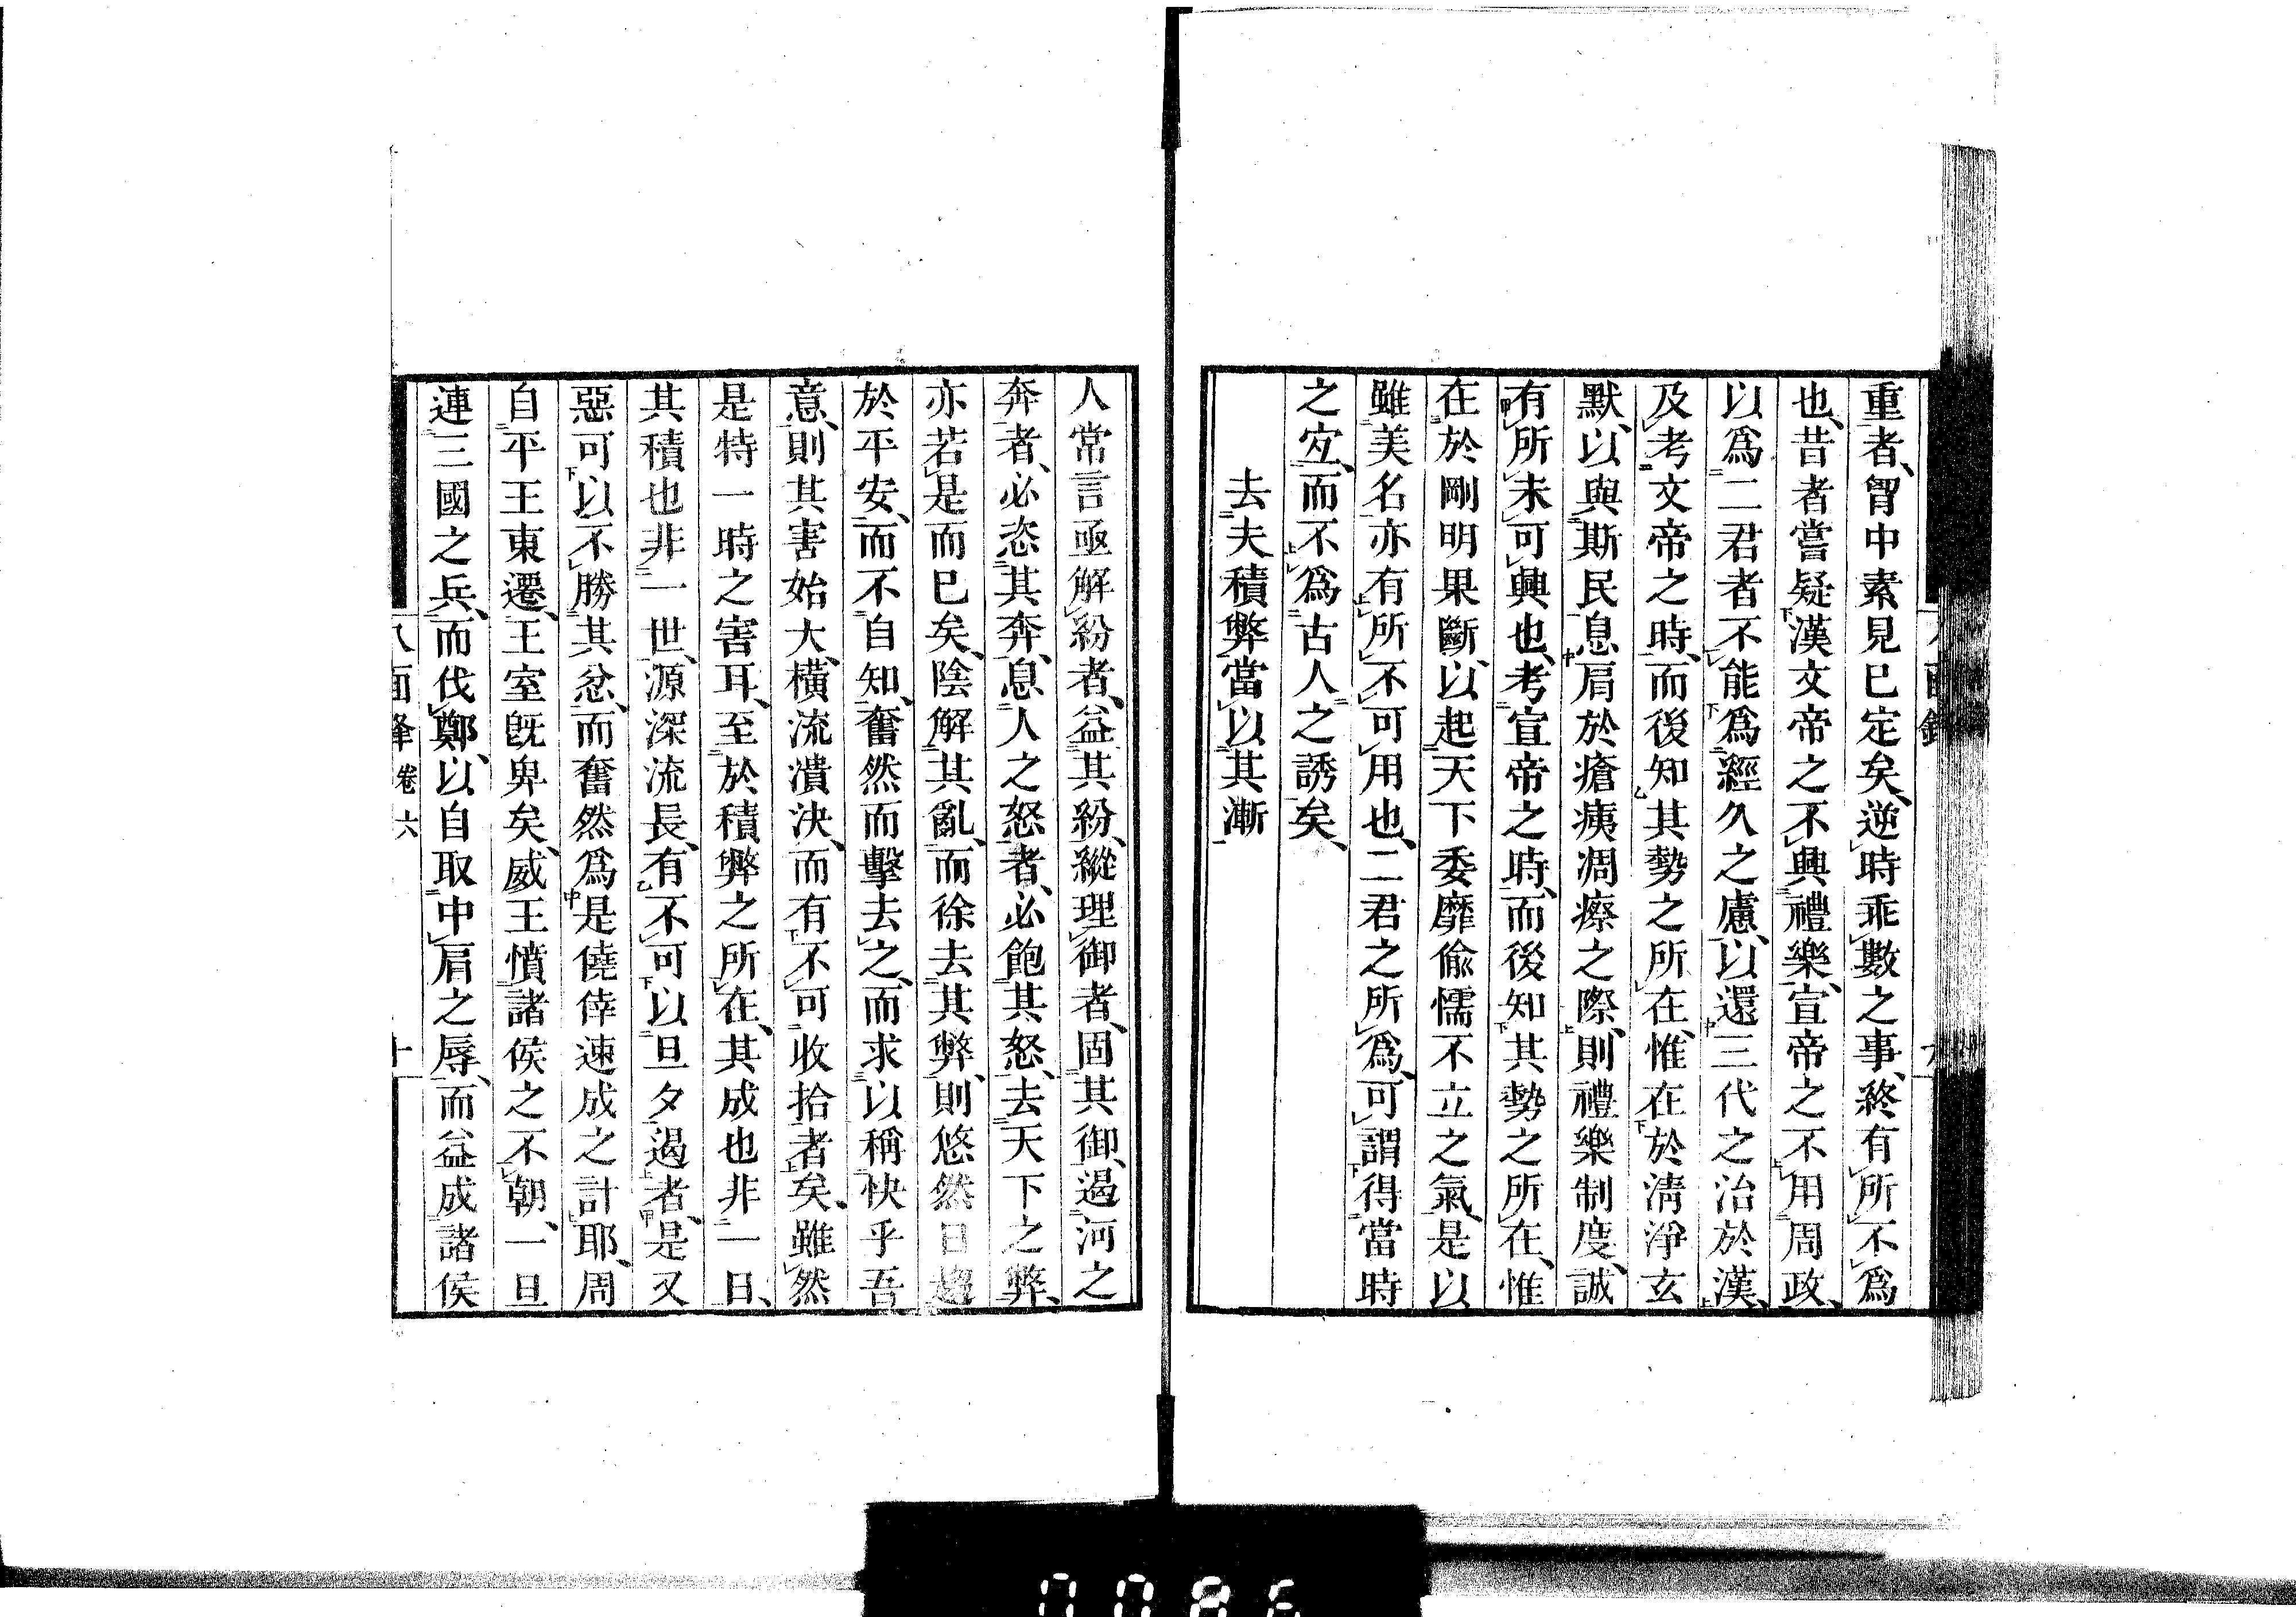 重者、胷中素見已定矣、逆時乖數之事、終有所不爲
也、昔者嘗疑漢文帝之不興禮樂、宣帝之不用周政、
以爲二君者不能爲經久之慮、以還三代之治於漢、
及考文帝之時、而後知其勢之所在、惟在於淸淨玄
默、以與斯民息肩於瘡痍凋瘵之際、則禮樂制度、誠
有所未可興也、考宣帝之時、而後知其勢之所在、惟
在於剛明果斷、以起天下委靡偸懦不立之氣、是以
雖美名亦有所不可用也、二君之所爲、可謂得當時
之宐、而不爲古人之誘矣、
去夫積弊當以其漸
人常言亟解紛者、益其紛、縱理御者、固其御、遏河之
奔者、必恣其奔、息人之怒者、必飽其怒、去天下之弊、
亦若是而已矣、陰解其亂、而徐去其弊、則悠然日趨
於平安、而不自知、奮然而擊去之、而求以稱快乎吾
意、則其害始大、橫流潰決、而有不可收拾者矣、雖然
是特一時之害耳、至於積弊之所在、其成也非一日、
其積也非一世、源深流長、有不可以旦夕遏者、是又
惡可以不勝其忿、而奮然爲是僥倖速成之計耶、周
自平王東遷、王室旣卑矣、威王憤諸侯之不朝、一旦
連三國之兵、而伐鄭、以自取中肩之辱、而益成諸侯
八面峰 卷六 十